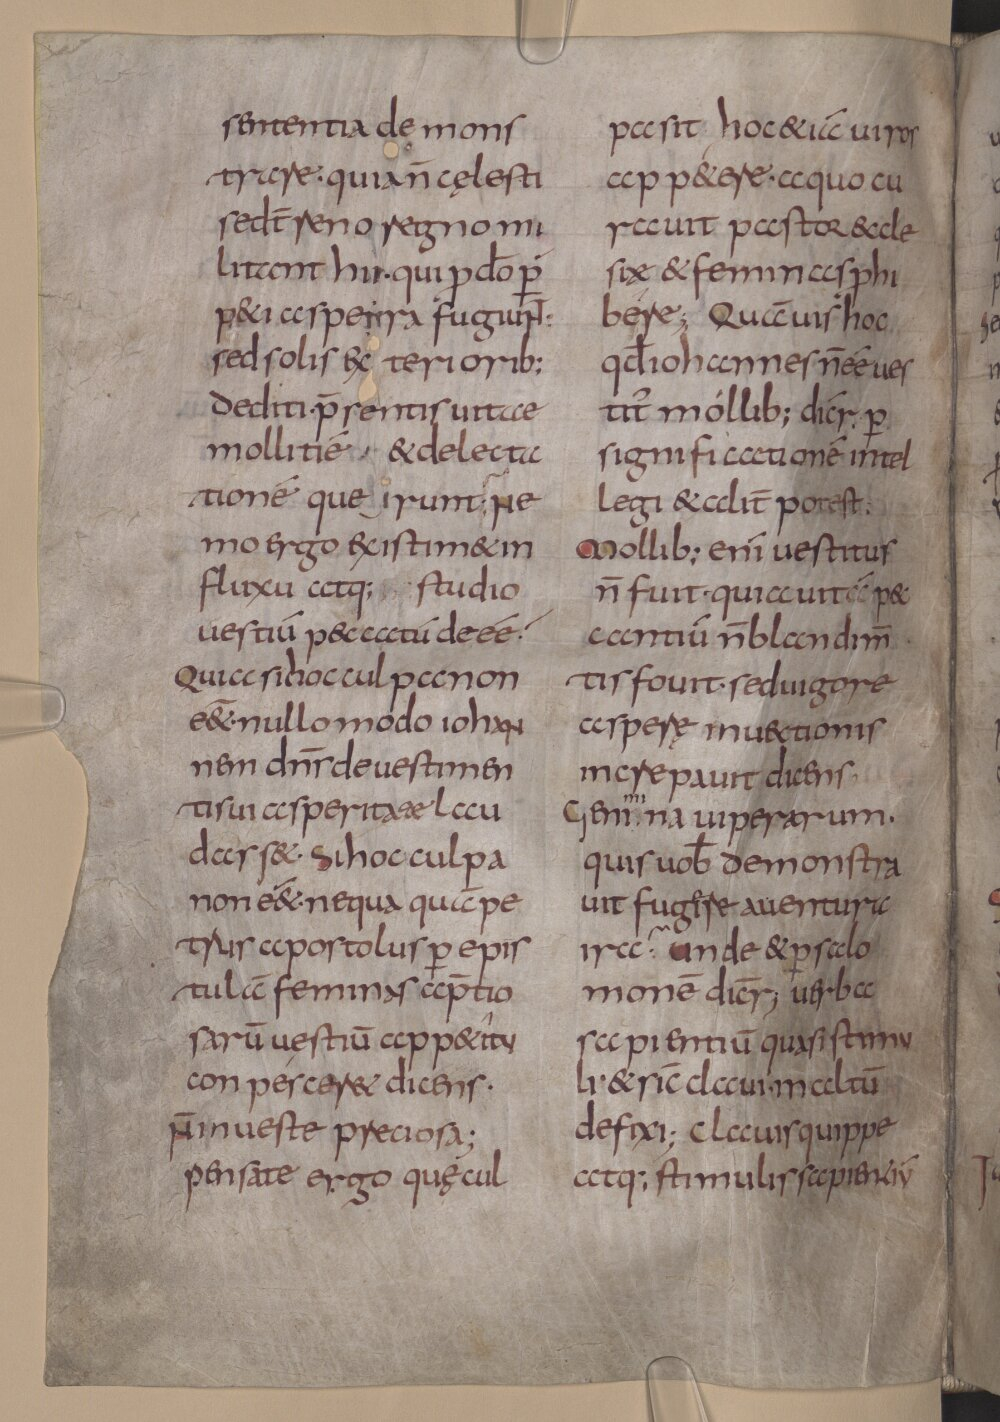 sententia demons
trare· quia n̄ cęlesti
sed t̄reno regno mi
litant hii· qui p dō p̄
p&i aspera fugiunt·
sed solis exteriorib;
dediti· p̄sentis uitae
mollitiē & delecta
tionē querunt· Ne
mo ergo existim& in
fluxu atq; studio
uestiū peccatū deēē·
Quia si hoc culpa non
ēē&· nullo modo iohan
nem dn̄s de uestimen
ti sui asperitate lau
dass&· Si hoc culpa
non ēē& nequaquā pe
trus apostolus p epis
tulā feminas ap̄tio
sarū uestiū app&itu
conpescer& dicens·
N̄ in ueste preciosa;
pensate ergo quę cul
pa sit hoc & iā uiros
app&ere· a quo cu
rauit pastor &cle
się & feminas phi
bere; Quāuis hoc
qd iohannes n̄ ēē ues
tit mollib; dicr̄ p
significationē intel
legi & alit̄ potest·
Mollib; enī uestitus
n̄ fuit· qui a uitā pec
cantiū n̄ blandim̄
tis fouit· sed uigore
asperę inuectionis
increpauit dicens·
Genimina uiperarum·
quis uob demonstra
uit fugere a uentura
ira· Unde & p salo
monē dicr̄; uerba
sapientiū quasi stimu
li· & sic claui in altū
defixi; Clauis quippe
atq; stimulis sapientiū